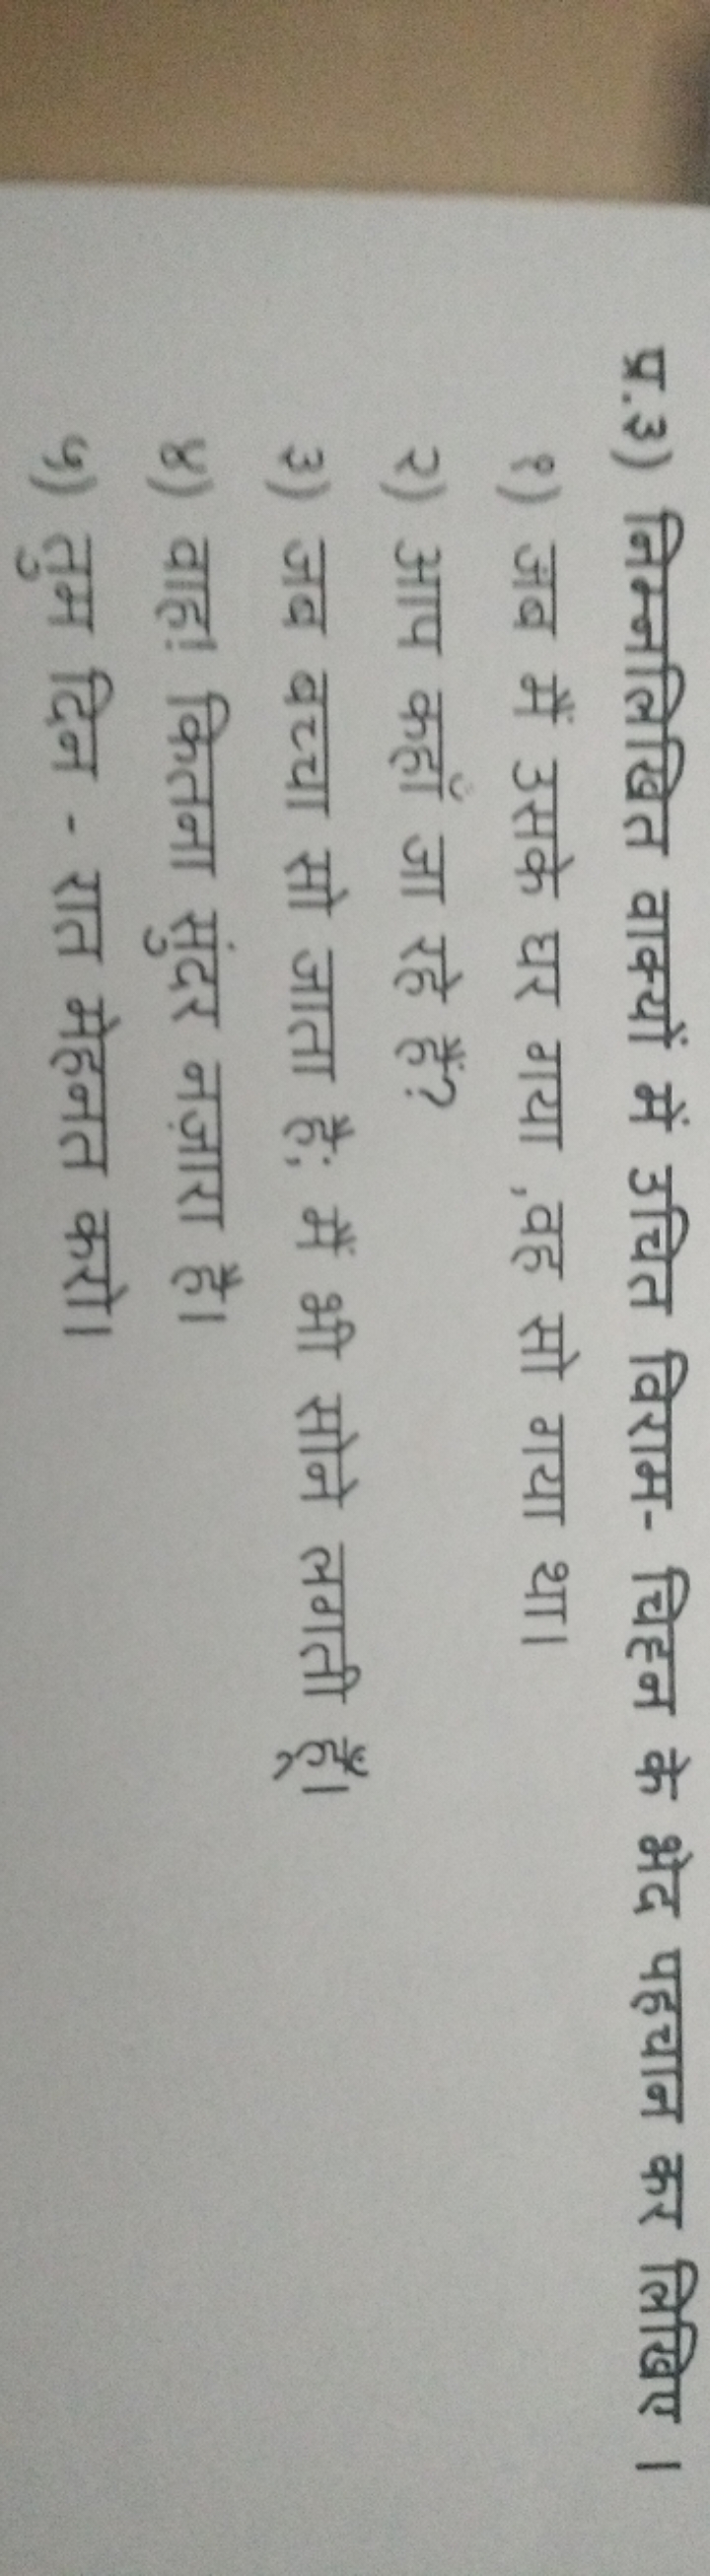 प्र.३) निम्नलिखित वाक्यों में उचित विराम- चिह्न के भेद पहचान कर लिखिए ।
१) जब मैं उसके घर गया ,वह सो गया था।
२) आप कहाँ जा रहे हैं?
३) जब बच्चा सो जाता है; मैं भी सोने लगती हूँ।
४) वाह! कितना सुंदर नज़ारा है।
५) तुम दिन - रात मेहनत करो।